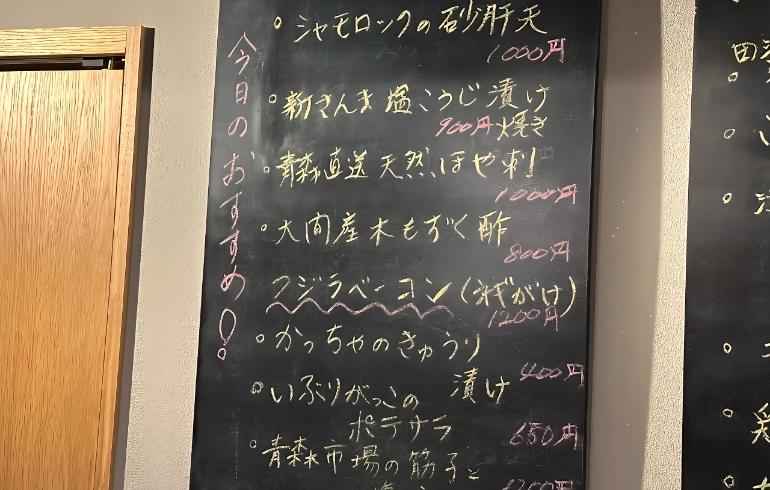 今日のおすすめ!
シャモロックの砂肝天
1000円
新さんま塩こうじ漬け
900円 焼き
青森直送天然ほや刺
1000円
大間産木もずく酢
800円
クジラベーコン
1200円
かっちゃのきゅうり
漬け 400円
いぶりがっこの
ポテサラ
650円
青森市場の筋子と